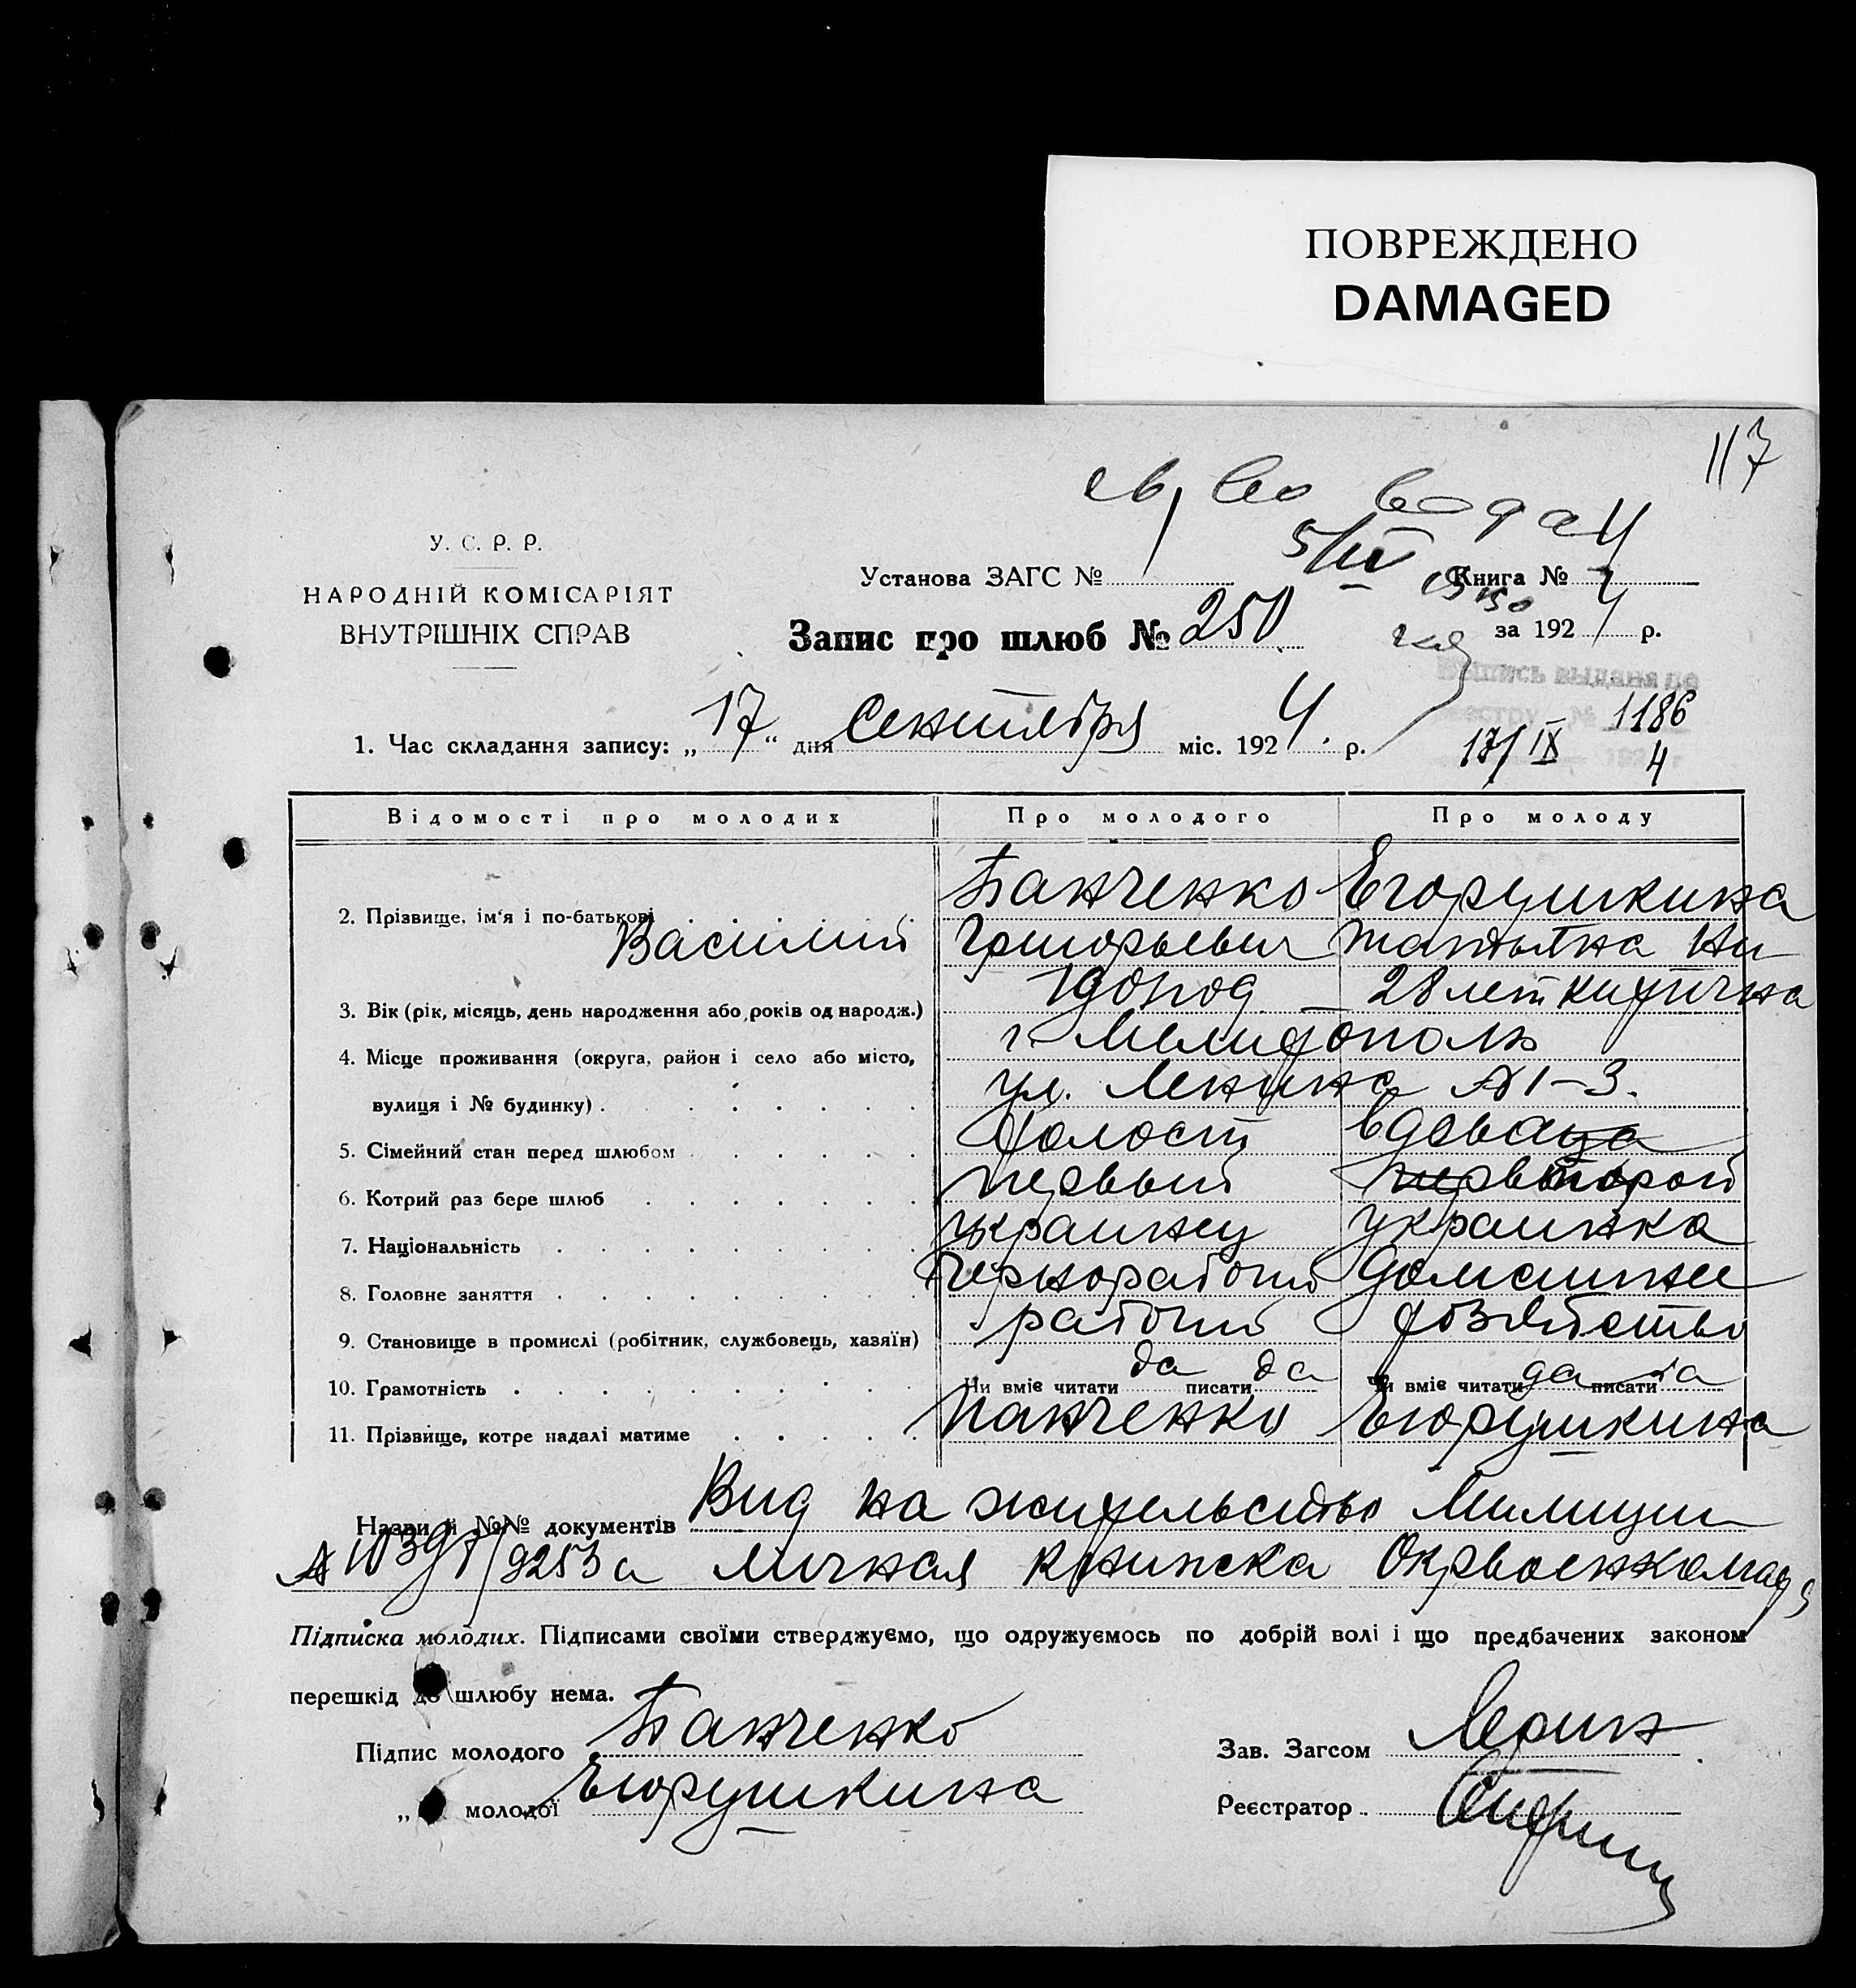 ПОВРЕЖДЕНО
DAMAGED
117
св, во выдан
5/IV
У. С. Р. Р.
НАРОДНІЙ КОМІСАРІЯТ
ВНУТРІШНІХ СПРАВ
Установа ЗАГС № Книга №
Запис про шлюб № 250 за 1924 р.
Выпись выдана по
реестру № 1186
17/IX 1924 г
1. Час складання запису: „17“ дня Сентября міс. 1924. р.
Відомості про молодих Про молодого Про молоду
2. Прізвище, ім‘я і по-батькові Панченко Егорушкина
Василий Григорьевич Татьяна Ни
3. Вік (рік, місяць, день народження або років од народж.) 28 лет китична
4. Місце проживання (округа, район і село або місто, г. Мелитополь
вулиця і № будинку) ул. Ленина № 1-3.
5. Сімейний стан перед шлюбом холост вдова
6. Котрий раз бере шлюб первый второй
7. Національність украинец украинка
8. Головне заняття чернорабочий домашнее
9. Становище в промислі (робітник, службовець, хазяїн) рабочий хозяйство
10. Грамотність Чи вміє читати да писати да Чи вміє читати да писати да
11. Прізвище, котре надалі матиме Панченко Егорушкина
Назви й №№ документів Вид на жительство Милиции
№ 10397/9253 и личная книжка Окрвоенкомата
Підписка молодих. Підписами своїми стверджуємо, що одружуємось по добрій волі і що предбачених законом
перешкід до шлюбу нема.
Підпис молодого Панченко Зав. Загсом
„ молодої Егорушкина Реєстратор